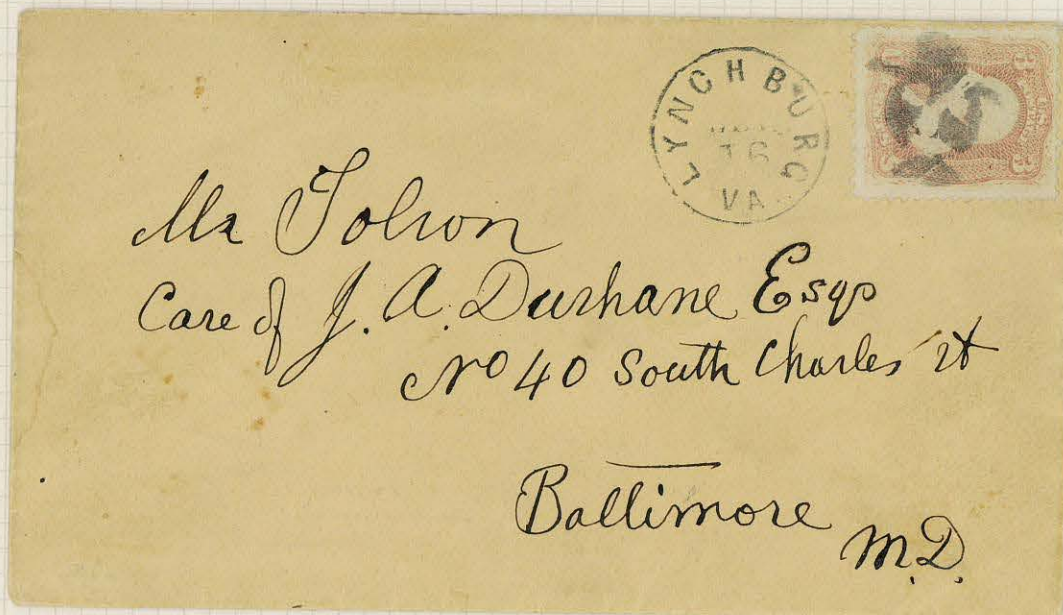 LYNCHBURG
16
VA.
Mr Tolson
Care of J. A. Durhane Esqr
No 40 South Charles St
Baltimore
M.D.